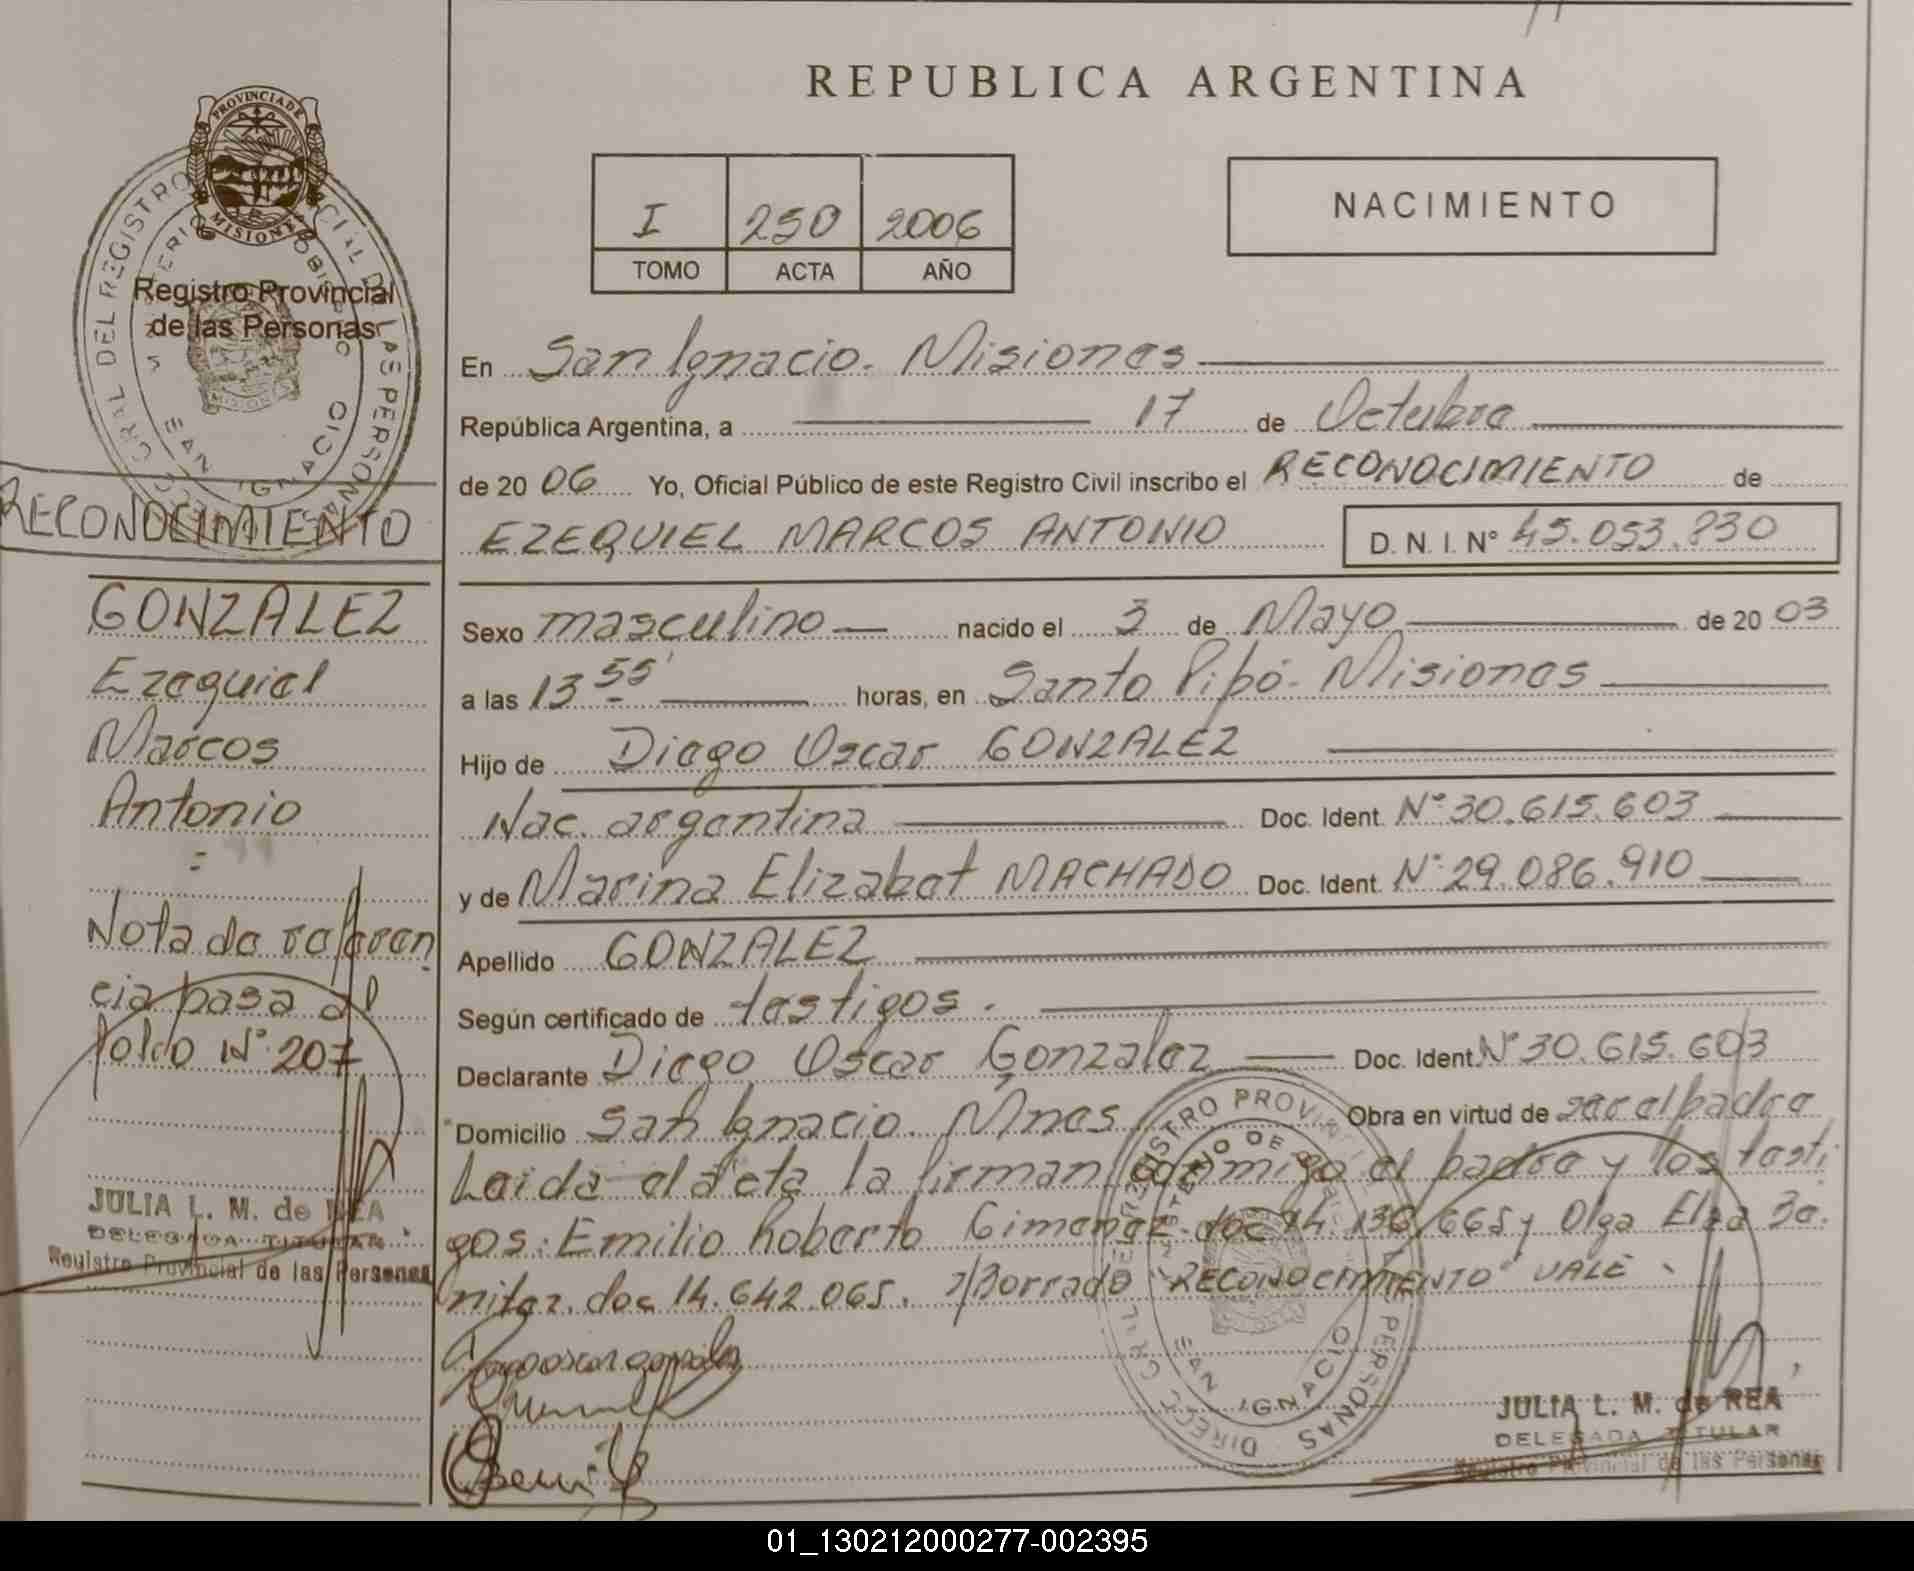 REPUBLICA ARGENTINA
PROVINCIA DE
MISIONES
Registro Provincial
de las Personas
I 250 2006
TOMO ACTA AÑO
NACIMIENTO
En San Ignacio. Misiones
República Argentina, a 17 de Octubre
de 20 06 Yo, Oficial Público de este Registro Civil inscribo el RECONOCIMIENTO de
EZEQUIEL MARCOS ANTONIO D. N. I. N° 45.053.830
Sexo masculino nacido el 3 de Mayo de 20 03
a las 13 55' horas, en Santo Pipó. Misiones
Hijo de Diego Oscar GONZALEZ
Nac. argentina Doc. Ident. N° 30.615.603
y de Marina Elizabet MACHADO Doc. Ident. N° 29.086.910
Apellido GONZALEZ
Según certificado de testigos.
Declarante Diego Oscar Gonzalez Doc. Ident. N° 30.615.603
Domicilio San Ignacio. Mnes Obra en virtud de ser el padre
Leida el acta la firman conmigo el padre y los testi
gos: Emilio Roberto Gimenez doc 14.136.665 y Olga Elsa Be.
nitez. doc 14.642.065. s/Borrado "RECONOCIMIENTO" VALE
RECONOCIMIENTO
GONZALEZ
Ezequiel
Marcos
Antonio
=
Nota de referen
cia pasa al
folio N° 207
JULIA L. M. de REA
DELEGADA TITULAR
Registro Provincial de las Personas
SAN IGNACIO
JULIA L. M. de REA
DELEGADA TITULAR
Registro Provincial de las Personas
01_130212000277-002395